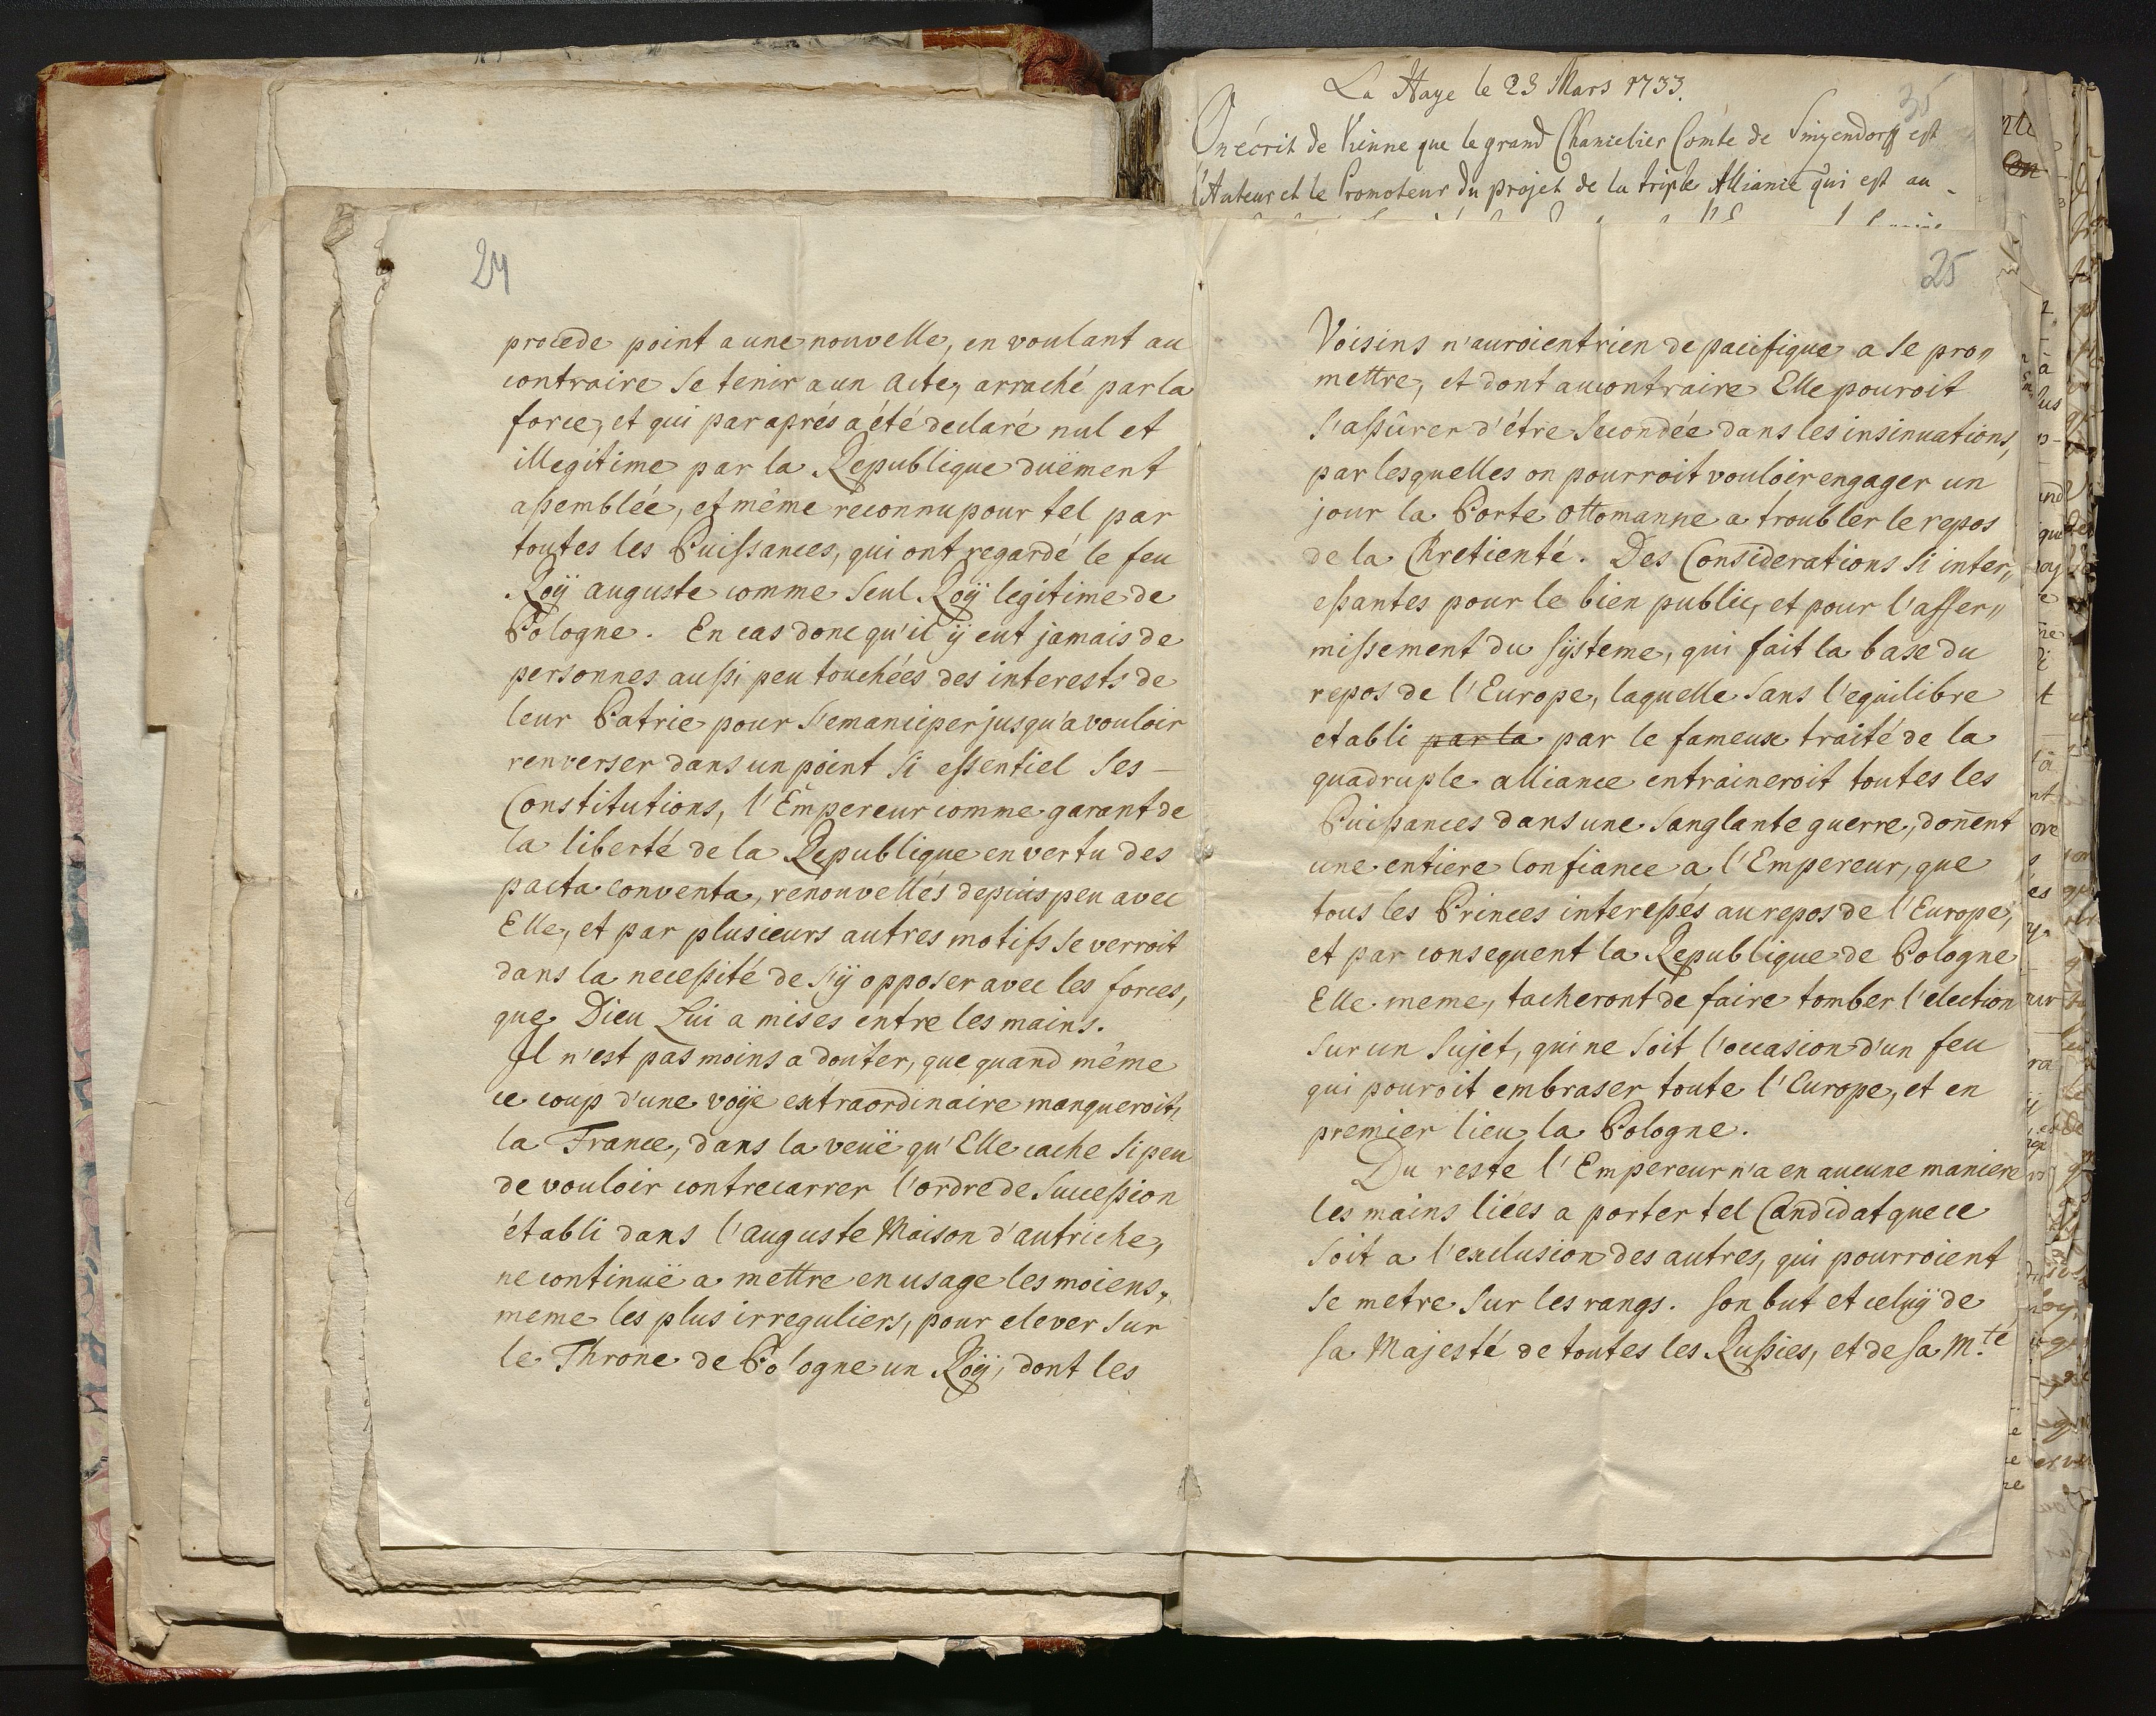 24
procede point a une nouvelle, en voulant au
contraire se tenir a un acte, arraché par la
force, et qui par aprés a été declaré nul et
illegitime par la Republique duëment
assemblée, et même reconnu pour tel par
toutes les Puissances, qui ont regardé le feu
Roÿ auguste comme seul Roÿ legitime de
Pologne. En cas donc qu'il ÿ eut jamais de
personnes aussi peu touchées des interests de
leur Patrie pour s'emanciper jusqu'a vouloir
renverser dans un point si essentiel ses —
Constitutions, l'Empereur comme garant de
la liberté de la Republique en vertu des
pacta conventa, renouvellés depuis peu avec
Elle, et par plusieurs autres motifs se verroit
dans la necessité de s'ÿ opposer avec les forces,
que Dieu Lui a mises entre les mains.
Il n'est pas moins a douter, que quand même
ce coup d'une voÿe extraordinaire manqueroit,
la France, dans la veuë qu'Elle cache si peu
de vouloir contrecarrer l'ordre de Succession
établi dans l'auguste Maison d'autriche,
ne continuë a mettre en usage les moiens,
meme les plus irreguliers, pour elever sur
le Throne de Pologne un Roÿ, dont les
La Haye le 23 Mars 1733.
35
On écrit de Vienne que le grand Chancelier Comte de Sinzendorff est
l'Auteur et le Promoteur du projet de la triple Alliance qui est au -
25
Voisins n'auroient rien de pacifique a se pro„
mettre, et dont au contraire Elle pouroit
s'assûrer d'être secondée dans les insinuations,
par lesquelles on pourroit vouloir engager un
jour la Porte Ottomanne a troubler le repos
de la Chretienté. Des Considerations si inter„
essantes pour le bien public, et pour l'affer„
missement du sÿsteme, qui fait la base du
repos de l'Europe, laquelle sans l'equilibre
établi par la par le fameux traité de la
quadruple alliance entraineroit toutes les
Puissances dans une sanglante guerre, doñent
une entiere Confiance a l'Empereur, que
tous les Princes interessés au repos de l'Europe,
et par consequent la Republique de Pologne
Elle meme, tacheront de faire tomber l'election
sur un sujet, qui ne soit l'occasion d'un feu
qui pouroit embraser toute l'Europe, et en
premier lieu la Pologne.
Du reste l'Empereur n'a en aucune maniere
les mains liées a porter tel Candidat que ce
soit a l'exclusion des autres, qui pourroient
se metre sur les rangs. Son but et celuÿ de
sa Majesté de toutes les Russies, et de sa M.té